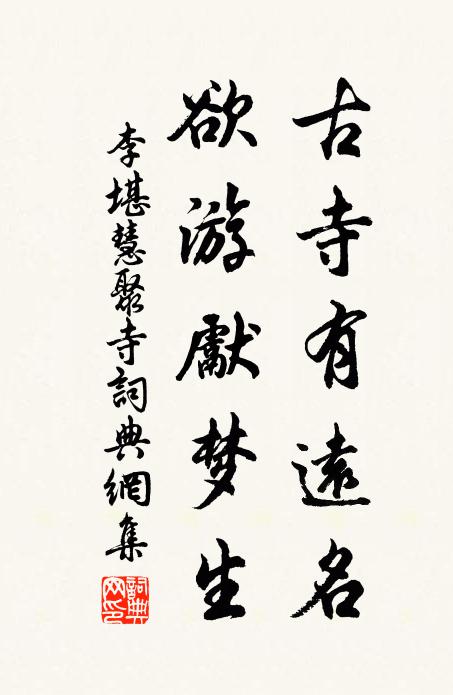 古寺有遠名
欲游獻梦生
李堪慧聚寺詞典網集
詞典网印